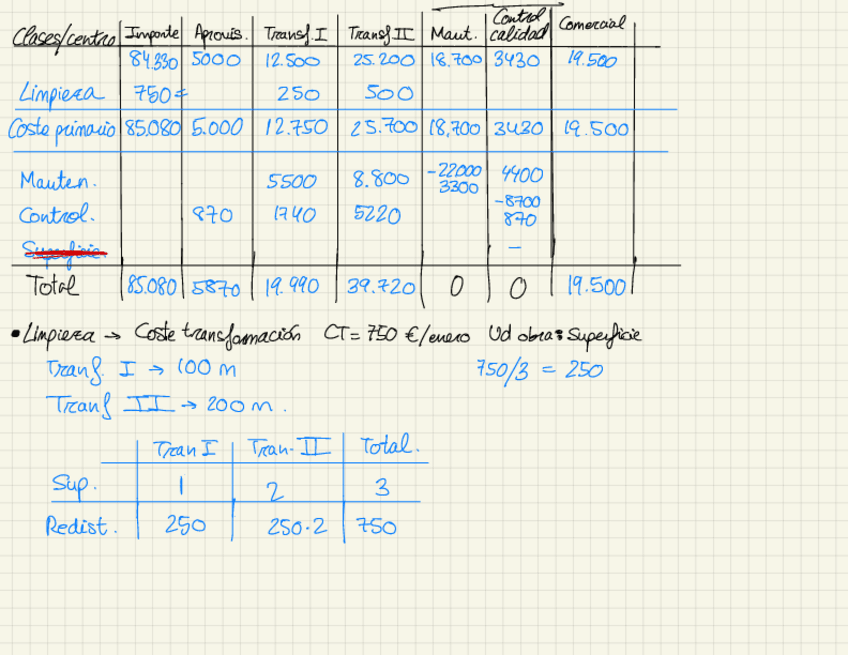 Clases/centro Importe Aprovis. Transf. I Transf II Maut. Control calidad Comercial
84.330 5000 12.500 25.200 18.700 3430 19.500
Limpieza 750= 250 500
Coste primario 85.080 5.000 12.750 25.700 18,700 3430 19.500
Mauten. 5500 8.800 -22000 4400
3300 -8700
Control. 870 1740 5220 870
Superficie. -
Total 85.080 5870 19.990 39.720 0 0 19.500
• Limpieza → Coste transformación CT = 750 €/enero Ud obra: Superficie
Tranf. I → 100 m 750/3 = 250
Tranf II → 200 m.
Tran I Tran. II Total.
Sup. 1 2 3
Redist. 250 250·2 750